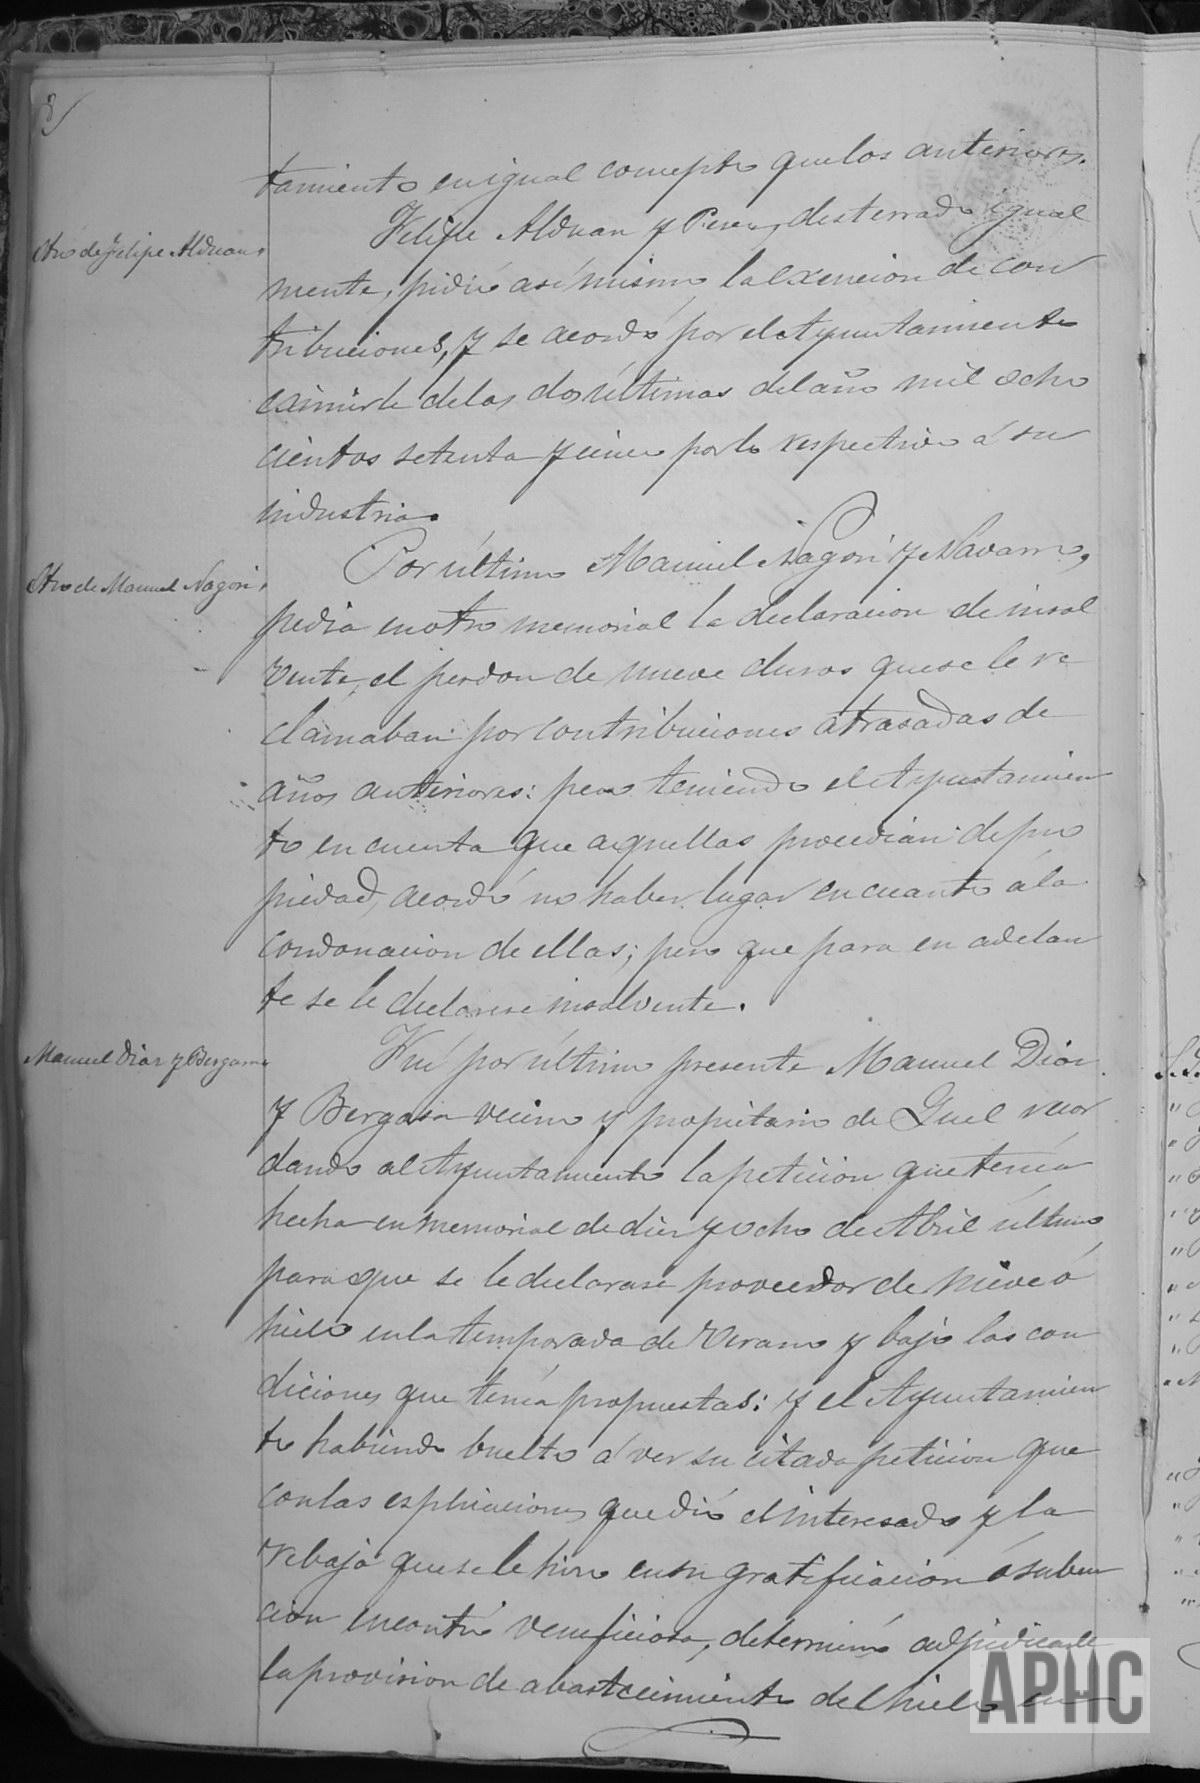 8
tamiento en igual concepto que los anteriores.
Otro de Felipe Alduan.
Felipe Alduan y Perez, desterrado igual
mente, pidió así mismo la exencion de con
tribuciones, y se acordó por el Ayuntamiento
eximirle de las dos últimas del año mil ocho
cientos setenta y cinco por lo respectivo á su
industria.
Otro de Manuel Nagori.
Por último Manuel Nagori y Navarro,
pedia en otro memorial la declaracion de insol
vente, el perdon de nueve duros que se le re
clamaban por contribuciones atrasadas de
años anteriores: pero teniendo el Ayuntamien
to en cuenta que aquellas procedian de pro
piedad, acordó no haber lugar en cuanto á la
condonacion de ellas; pero que para en adelan
te se le declarase insolvente.
Manuel Diaz y Bergasa
Fué por último presente Manuel Diaz
y Bergasa vecino y propietario de Quel recor
dando al Ayuntamiento la peticion que tenía
hecha en memorial de diez y ocho de Abril último
para que se le declarase proveedor de nieve ó
hielo en la temporada de Verano y bajo las con
diciones que tenía propuestas: y el Ayuntamien
to habiendo buelto á ver su citada peticion que
con las esplicaciones que dió el interesado y la
rebaja que se le hizo en su gratificacion ó suben
cion encontró veneficiosa, determinó adjudicarle
la provision de abastecimiento del hielo en
APHC